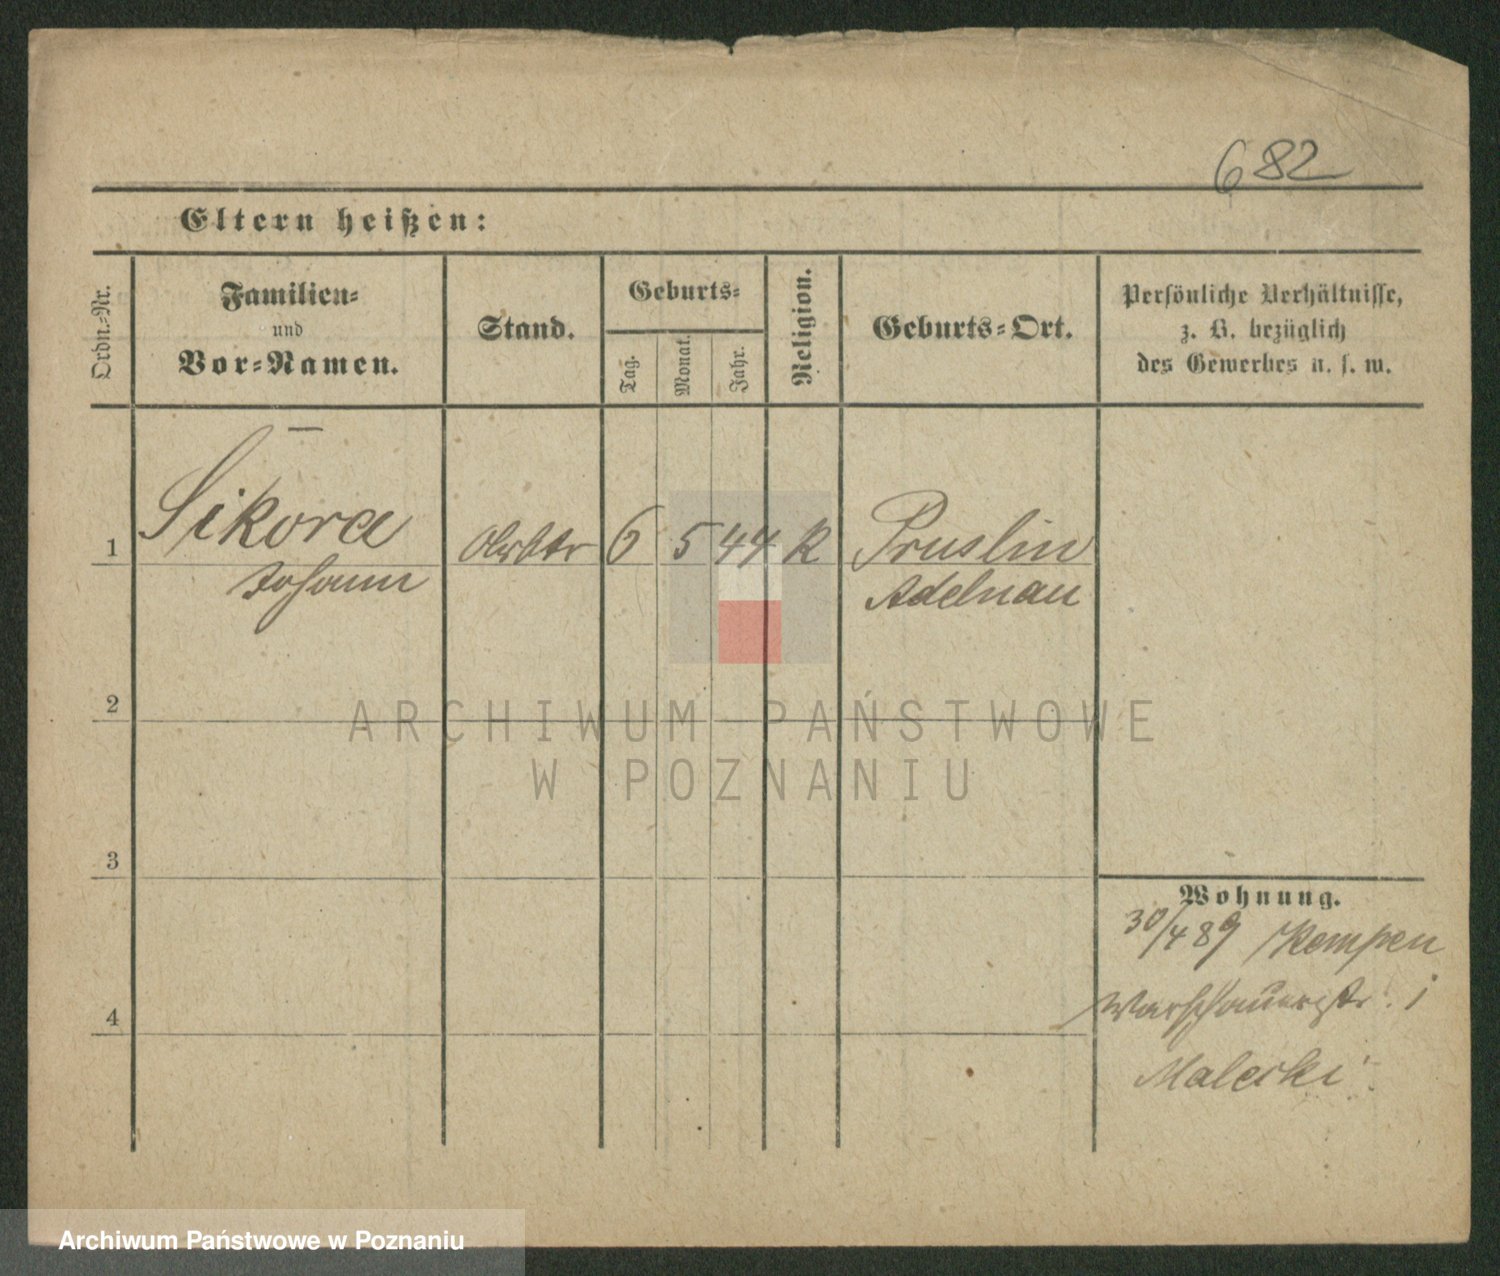 682
Eltern heißen:
Ordn.-Nr.
Familien-
und
Vor-Namen.
Stand.
Geburts-
Tag.
Monat.
Jahr.
Religion.
Geburts-Ort.
Persönliche Verhältnisse,
z. B. bezüglich
des Gewerbes u. s. w.
1
Sikora
Johann
6 5 44 k
Pruslin
Adelnau
2
3
4
Wohnung.
30/4 89 Kempen
Warschauerstr.
Malecki
ARCHIWUM PAŃSTWOWE
W POZNANIU
Archiwum Państwowe w Poznaniu